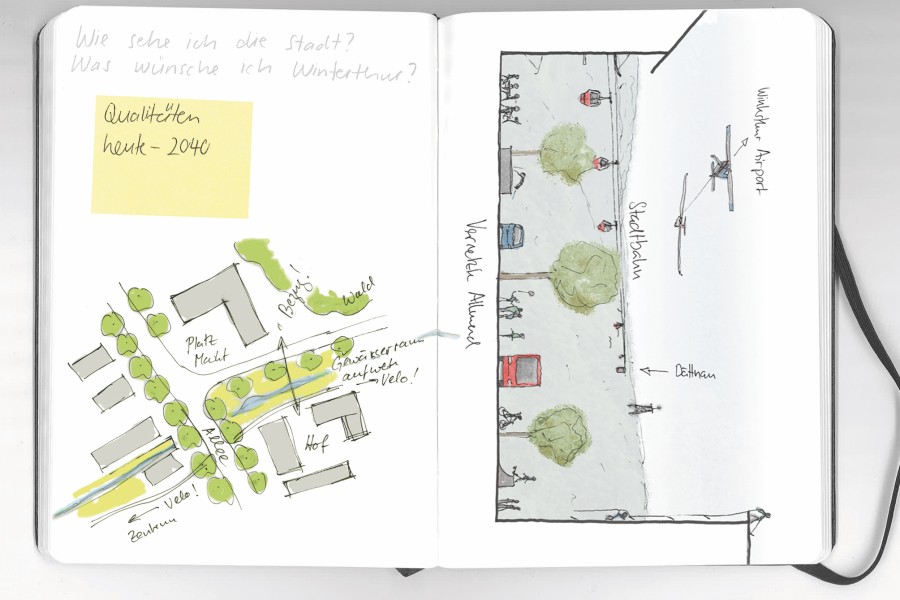 Wie sehe ich die Stadt?
Was wünsche ich Winterthur?
Qualitäten
heute – 2040
Bezug!
Wald
Platz
Markt
Gewässerraum
aufwerten
Velo!
Allee
Hof
Velo!
Zentrum
Vernetzte Allmend
Stadtbahn
Winterthur Airport
Dättnau